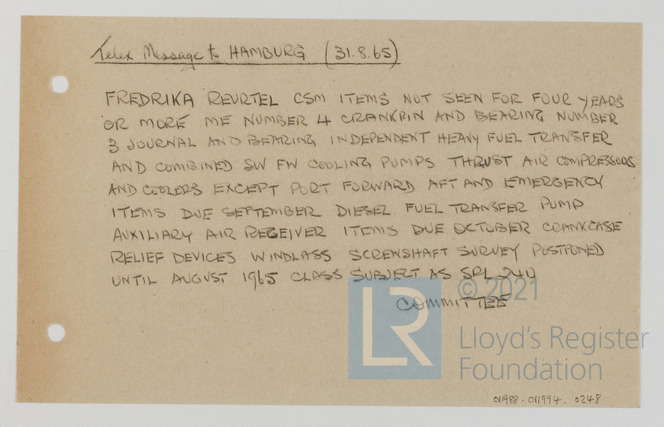 Telex Message to HAMBURG (31.8.65)
FREDRIKA REURTEL CSM ITEMS NOT SEEN FOR FOUR YEARS
OR MORE ME NUMBER 4 CRANKPIN AND BEARING NUMBER
3 JOURNAL AND BEARING INDEPENDENT HEAVY FUEL TRANSFER
AND COMBINED SW FW COOLING PUMPS THRUST AIR COMPRESSORS
AND COOLERS EXCEPT PORT FORWARD AFT AND EMERGENCY
ITEMS DUE SEPTEMBER DIESEL FUEL TRANSFER PUMP
AUXILIARY AIR RECEIVER ITEMS DUE OCTOBER CRANKCASE
RELIEF DEVICES WINDLASS SCREWSHAFT SURVEY POSTPONED
UNTIL AUGUST 1965 CLASS SUBJECT AS SRL 240
COMMITTEE
© 2021
LR
Lloyd's Register
Foundation
011988-011994-0248